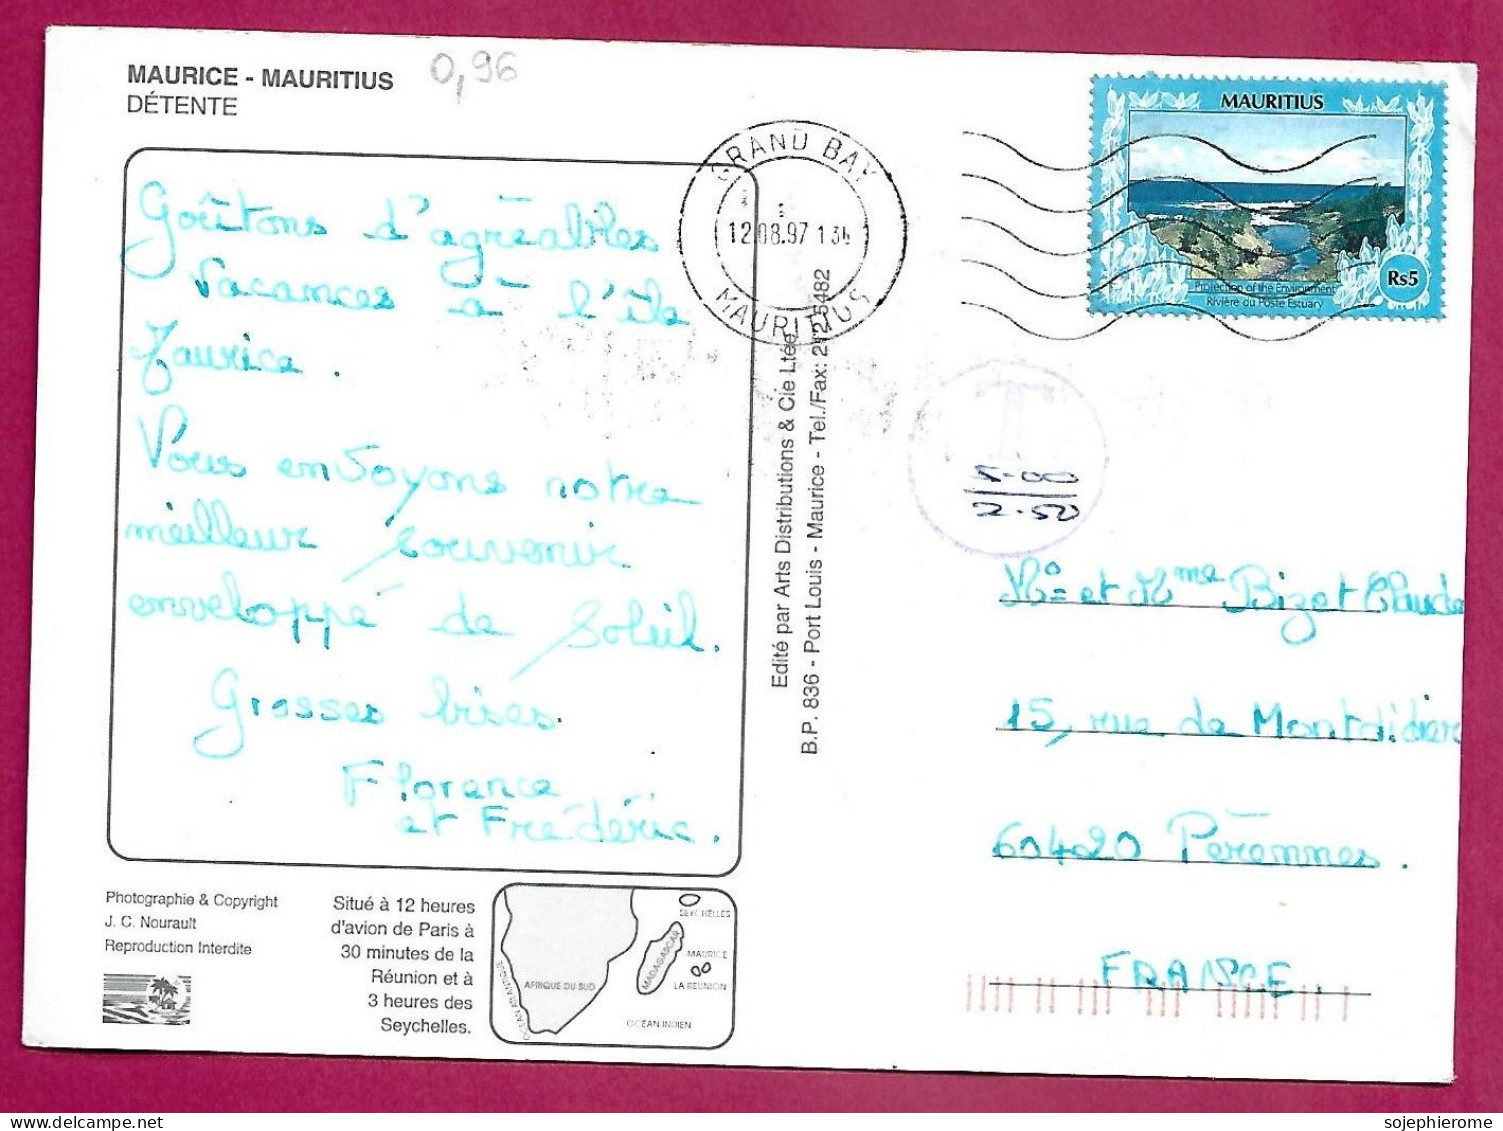 MAURICE - MAURITIUS
DÉTENTE
0,96
Goûtons d'agréables
vacances à l'île
Maurice.
Vous envoyons notre
meilleur souvenir
enveloppé de soleil.
Grosses bises.
Florence
et Frédéric.
Photographie & Copyright
J. C. Nourault
Reproduction Interdite
Situé à 12 heures
d'avion de Paris à
30 minutes de la
Réunion et à
3 heures des
Seychelles.
SEYCHELLES
MADAGASCAR
MAURICE
LA REUNION
AFRIQUE DU SUD
OCÉAN ATLANTIQUE
OCÉAN INDIEN
Edité par Arts Distributions & Cie Ltée
B.P. 836 - Port Louis - Maurice - Tel./Fax: 212 6482
GRAND BAY
12.08.97
MAURITIUS
MAURITIUS
Rs5
Protection of the Environment
Rivière du Poste Estuary
T
5-00
2.50
Mr et Mme Bizet Claude
15, rue de Montdidier
60420 Pérennes.
FRANCE.
sojephierome